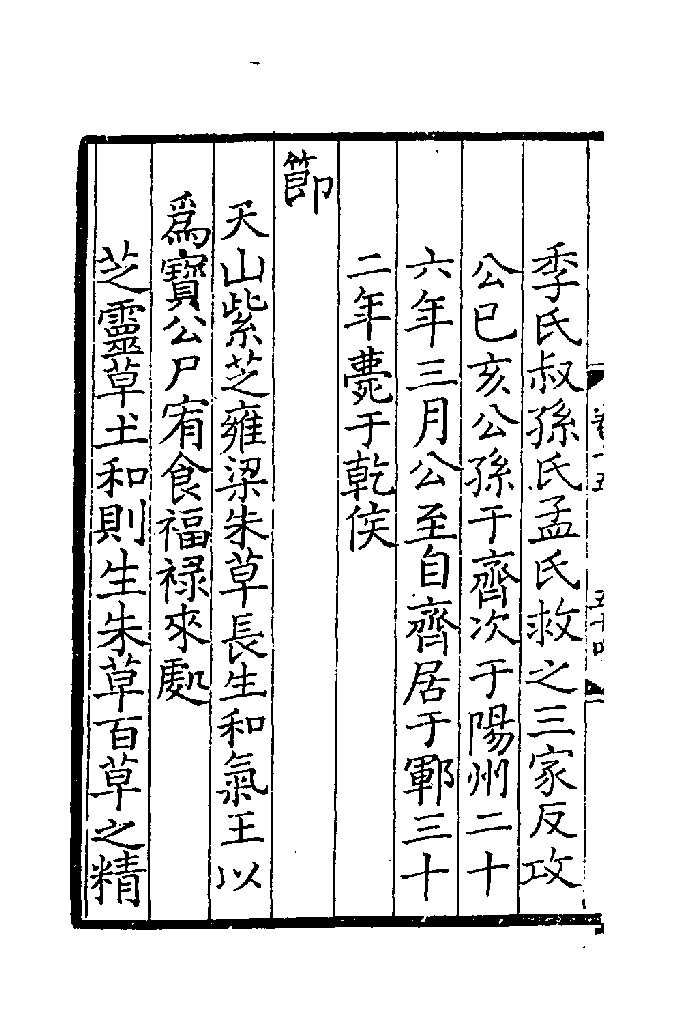 季氏叔孫氏孟氏救之三家反攻
公已亥公孫于齊次于陽州二十
六年三月公至自齊居于鄆三十
二年薨于乾侯
節
天山紫芝雍梁朱草長生和氣王以
爲寶公尸宥食福祿來處
芝靈草土和則生朱草百草之精